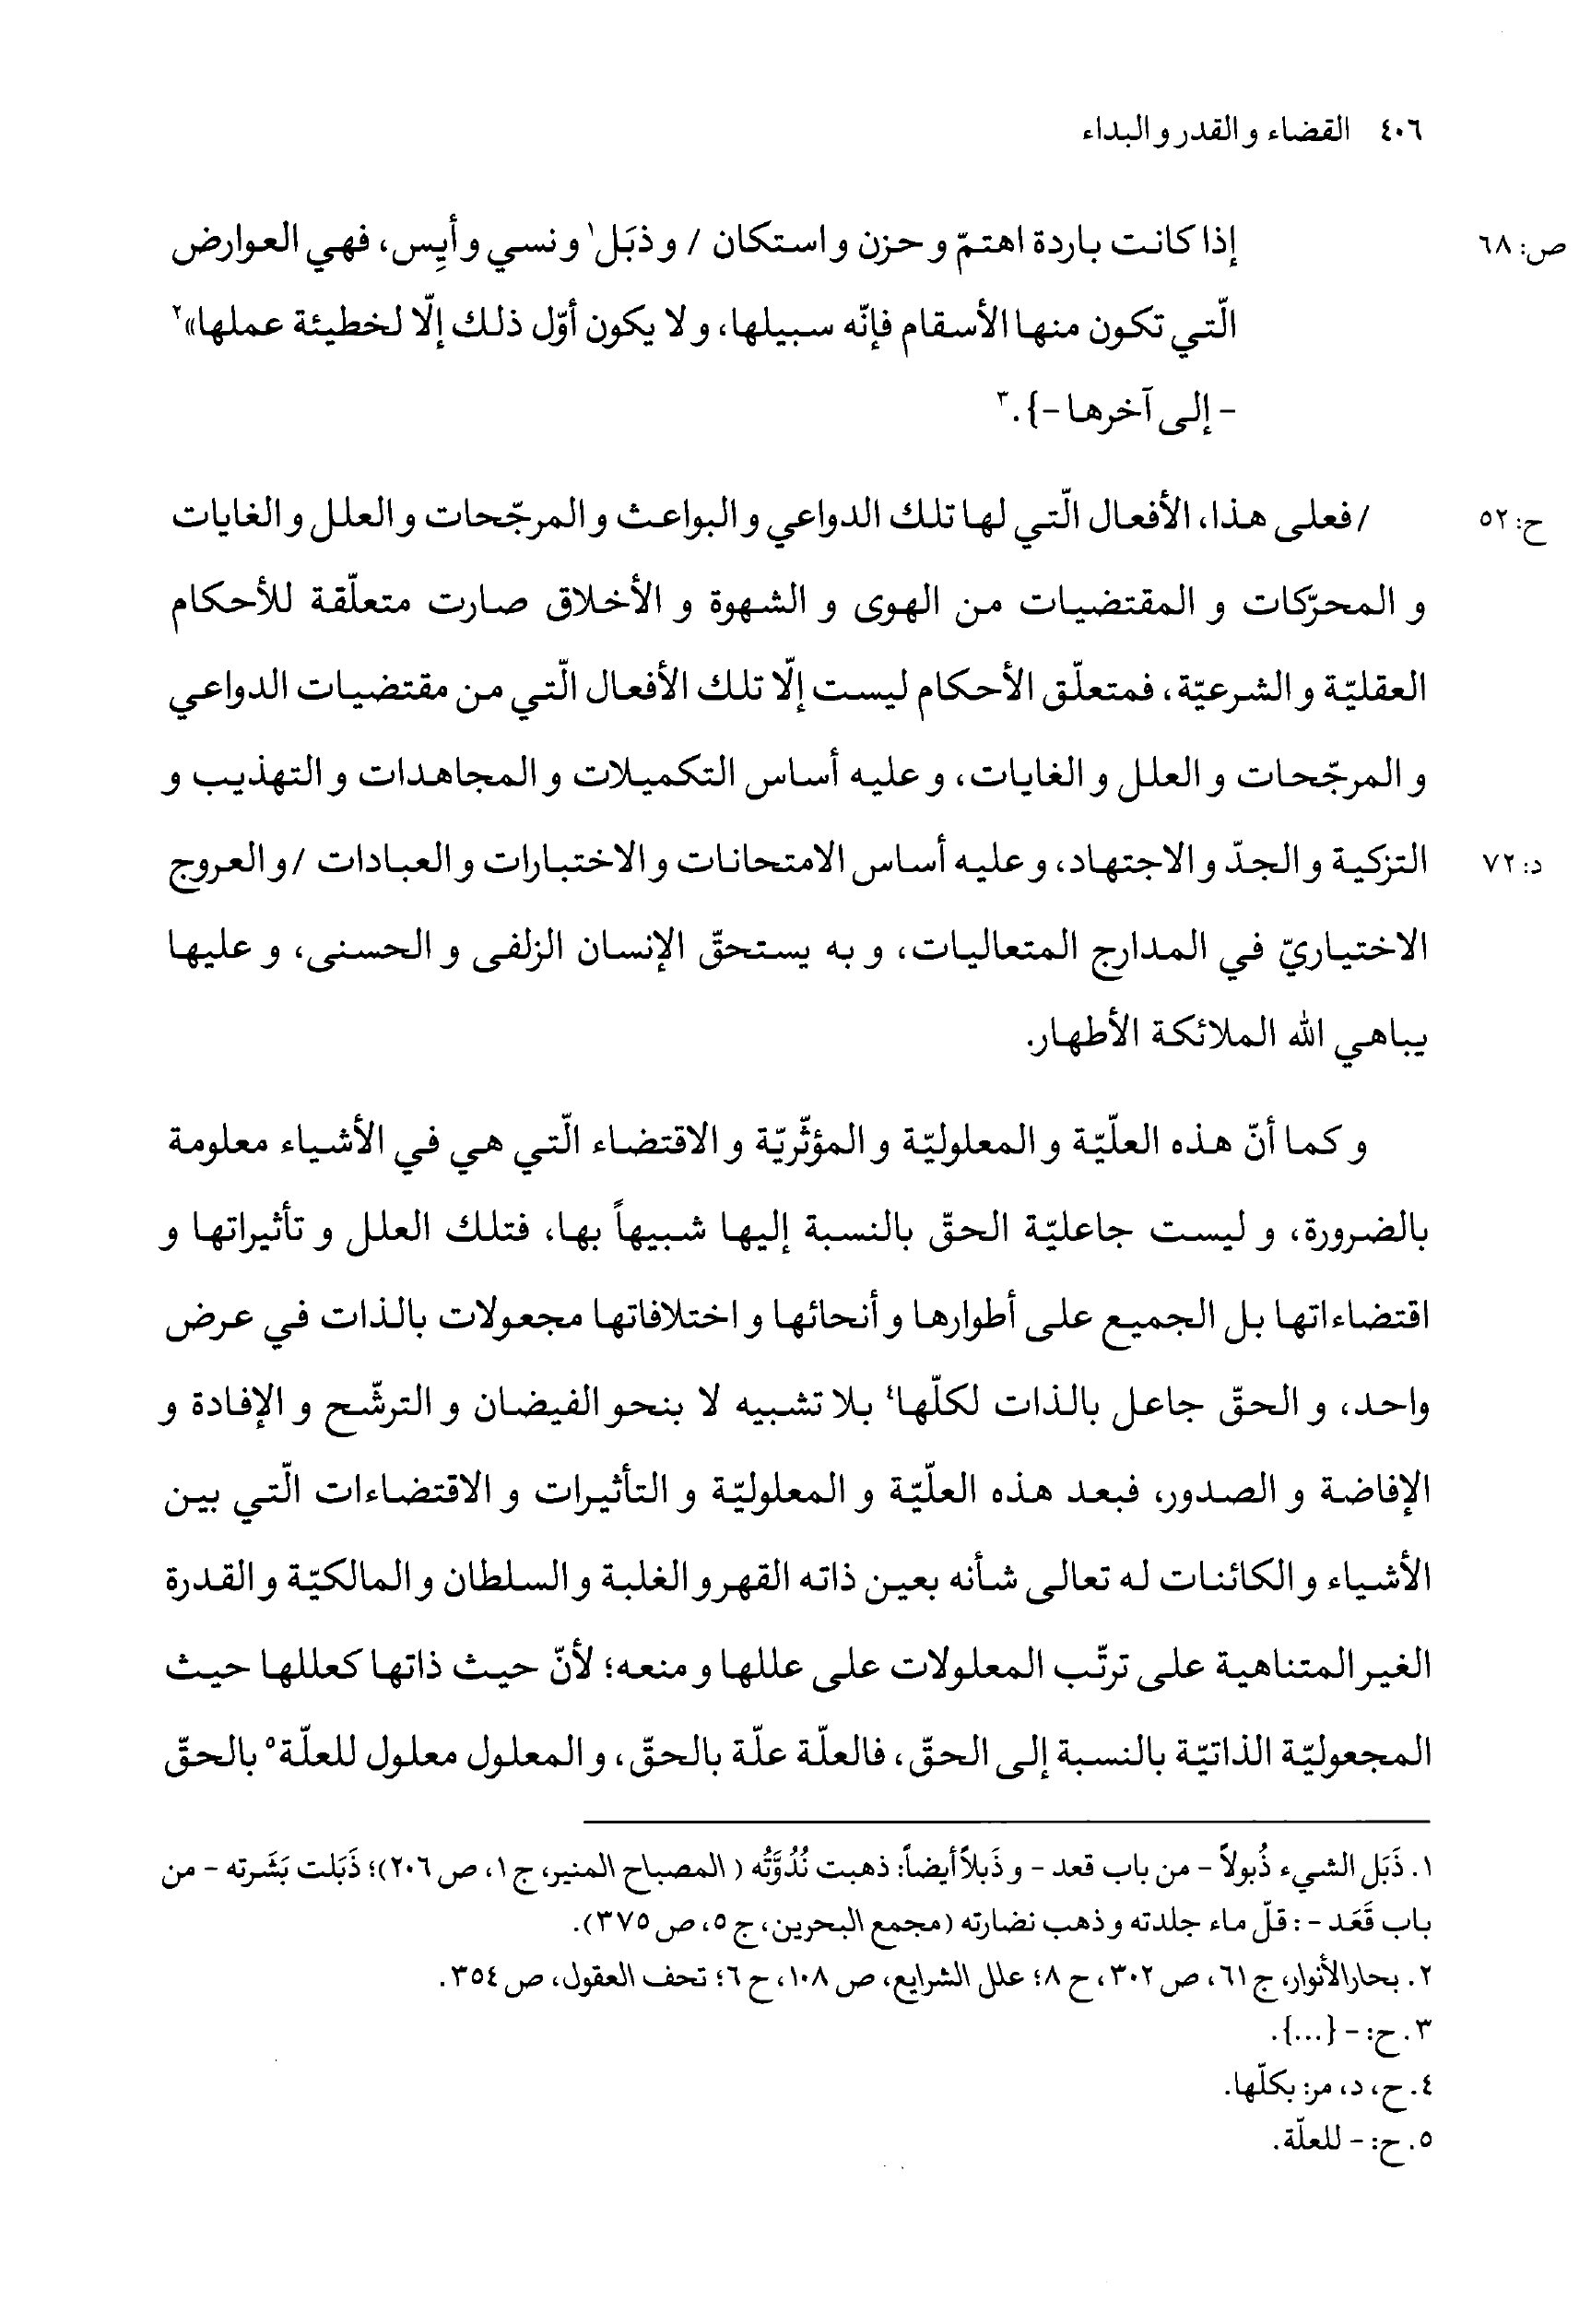 ٤٠٦ القضاء و القدر و البداء
إذا كانت باردة اهتمّ و حزن و استكان / و ذبَل١ و نسي و أيِس، فهي العوارض
ص: ٦٨
الّتي تكون منها الأسقام فإنّه سبيلها، و لا يكون أوّل ذلك إلّا لخطيئة عملها»٢
- إلى آخرها -}.٣
/ فعلى هذا، الأفعال الّتي لها تلك الدواعي و البواعث و المرجّحات و العلل و الغايات
ح: ٥٢
و المحرّكات و المقتضيات من الهوى و الشهوة و الأخلاق صارت متعلّقة للأحكام
العقليّة و الشرعيّة، فمتعلّق الأحكام ليست إلّا تلك الأفعال الّتي من مقتضيات الدواعي
و المرجّحات و العلل و الغايات، و عليه أساس التكميلات و المجاهدات و التهذيب و
التزكية و الجدّ و الاجتهاد، و عليه أساس الامتحانات و الاختبارات و العبادات / و العروج
د: ٧٢
الاختياريّ في المدارج المتعاليات، و به يستحقّ الإنسان الزلفى و الحسنى، و عليها
يباهي الله الملائكة الأطهار.
و كما أنّ هذه العلّيّة و المعلوليّة و المؤثّريّة و الاقتضاء الّتي هي في الأشياء معلومة
بالضرورة، و ليست جاعليّة الحقّ بالنسبة إليها شبيهاً بها، فتلك العلل و تأثيراتها و
اقتضاءاتها بل الجميع على أطوارها و أنحائها و اختلافاتها مجعولات بالذات في عرض
واحد، و الحقّ جاعل بالذات لكلّها٤ بلا تشبيه لا بنحو الفيضان و الترشّح و الإفادة و
الإفاضة و الصدور، فبعد هذه العلّيّة و المعلوليّة و التأثيرات و الاقتضاءات الّتي بين
الأشياء و الكائنات له تعالى شأنه بعين ذاته القهر و الغلبة و السلطان و المالكيّة و القدرة
الغير المتناهية على ترتّب المعلولات على عللها و منعه؛ لأنّ حيث ذاتها كعللها حيث
المجعوليّة الذاتيّة بالنسبة إلى الحقّ، فالعلّة علّة بالحقّ، و المعلول معلول للعلّة٥ بالحقّ
١. ذَبَل الشيء ذُبولاً - من باب قعد - و ذَبلاً أيضاً: ذهبت نُدُوَّتُه (المصباح المنير، ج ١، ص ٢٠٦)؛ ذَبَلت بَشَرته - من
باب قَعَد - : قلّ ماء جلدته و ذهب نضارته (مجمع البحرين، ج ٥، ص ٣٧٥).
٢. بحار الأنوار، ج ٦١، ص ٣٠٢، ح ٨؛ علل الشرايع، ص ١٠٨، ح ٦؛ تحف العقول، ص ٣٥٤.
٣. ح: - {...}.
٤. ح، د، مر: بكلّها.
٥. ح: - للعلّة.